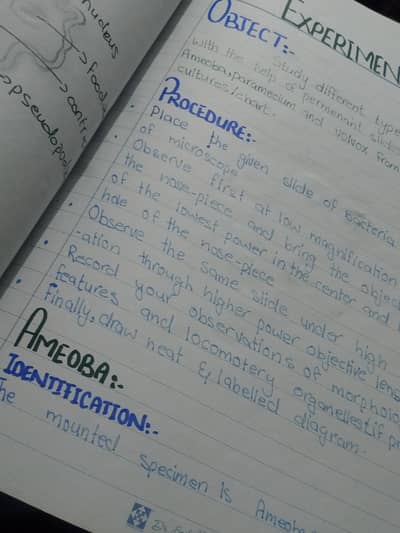 nucleus
food
contr
pseudopod
EXPERIMEN
OBJECT:-
Study different type
with the help of permenant slides
Ameoba, paramecium and volvox from
cultures/chart.
PROCEDURE:-
• Place the given slide of Bacteria
of microscope
• Observe first at low magnification
the nose-piece and bring the object
of the lowest power in the center and
hole of the nose-piece
• Observe the same slide under high
-ation through higher power objective lens
• Record your observations of morpholo
features and locomotery organelles if pr
• Finally, draw neat & labelled diagram.
AMEOBA:-
IDENTIFICATION:-
The mounted specimen is Ameoba